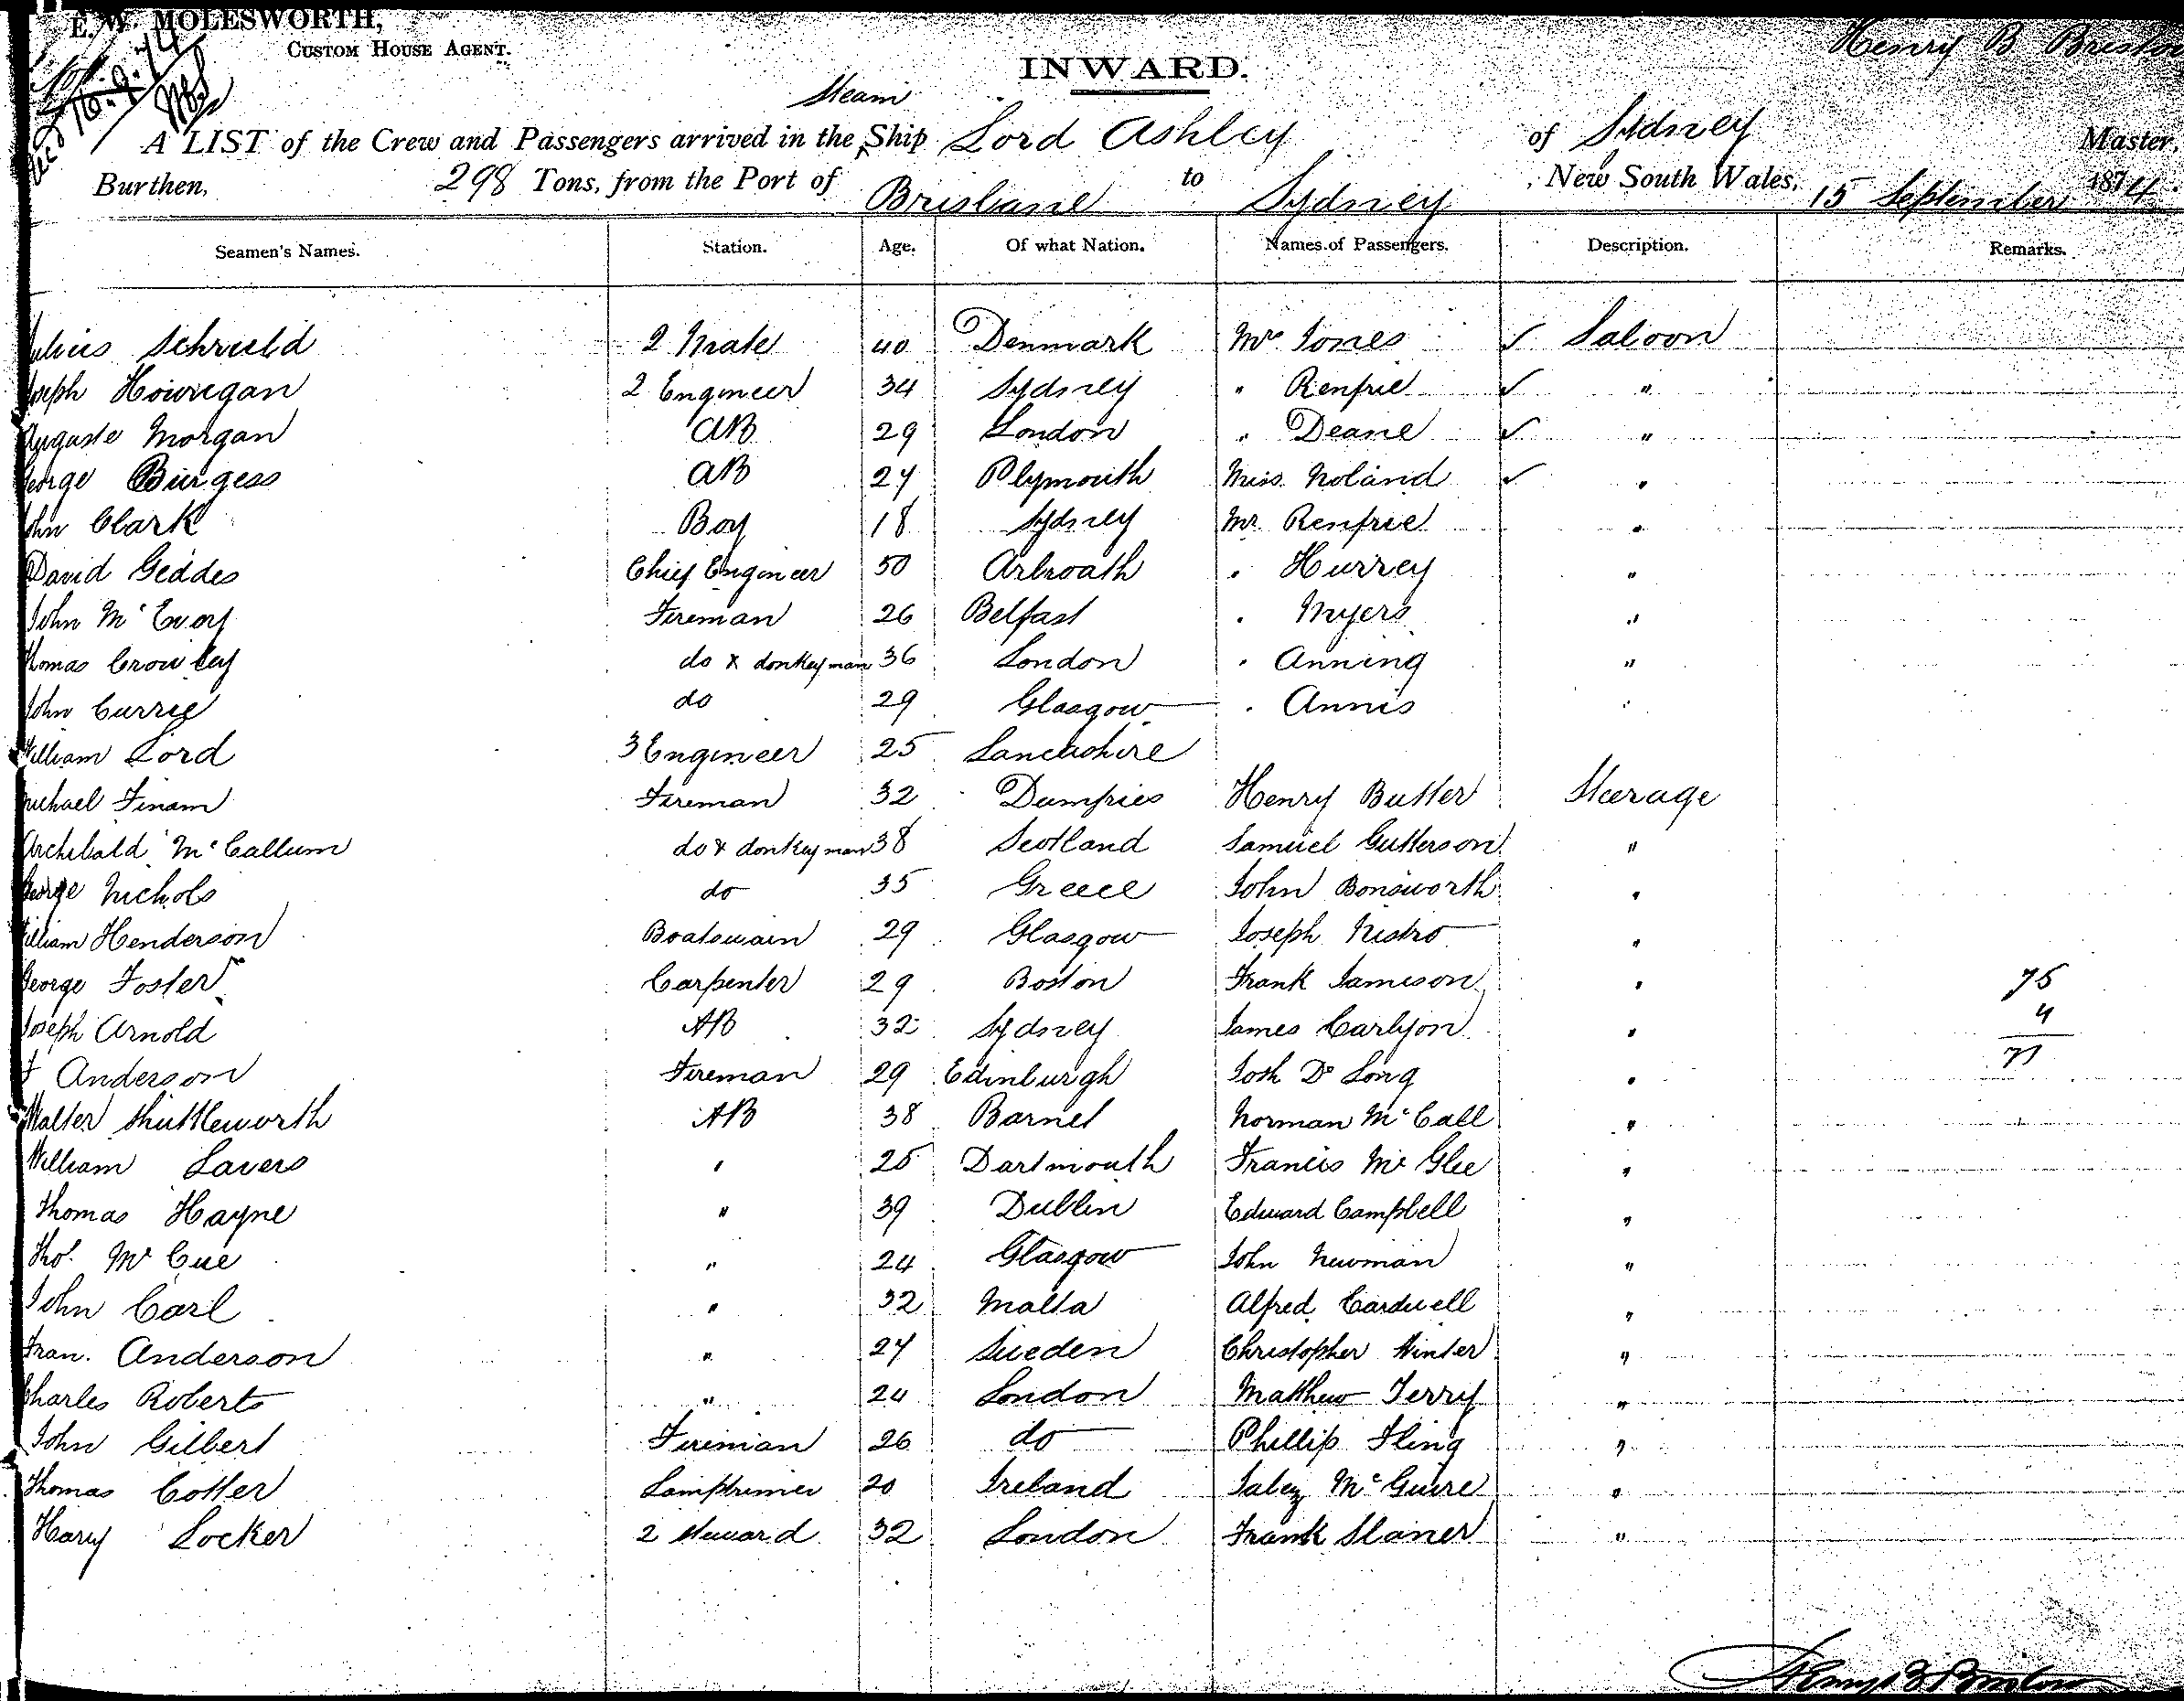 E. W. MOLESWORTH,
CUSTOM HOUSE AGENT.
Henry B Bristow
INWARD.
Steam
A LIST of the Crew and Passengers arrived in the Ship Lord Ashley of Sydney Master,
Burthen, 298 Tons, from the Port of Brisbane to Sydney, New South Wales, 15 September 1874.
Seamen's Names. Station. Age. Of what Nation. Names of Passengers. Description. Remarks.
2 Mate 40 Denmark Mrs Jones ✓ Saloon
Joseph Howregan 2 Engineer 34 Sydney " Renfrie ✓ "
Auguste Morgan AB 29 London " Deane ✓ "
George Burgess AB 27 Plymouth Miss Noland ✓ "
John Clark Boy 18 Sydney Mr Renfrie "
David Geddes Chief Engineer 50 Arbroath " Hurrey "
John McEvoy Fireman 26 Belfast " Myers "
Thomas Crowley do & donkeyman 36 London " Anning "
John Currie do 29 Glasgow " Annis "
William Lord 3 Engineer 25 Lancashire
Michael Finam Fireman 32 Dumfries Henry Butler Steerage
Archibald McCallum do & donkeyman 38 Scotland Samuel Gutterson "
George Nichols do 35 Greece John Bonsworth "
William Henderson Boatswain 29 Glasgow Joseph Nistro "
George Foster Carpenter 29 Boston Frank Jameson " 75
Joseph Arnold AB 32 Sydney James Carlyon " 4
J Anderson Fireman 29 Edinburgh Josh De Long " 71
Walter Shuttleworth AB 38 Barnet Norman McCall "
William Lavers " 25 Dartmouth Francis McGlee "
Thomas Hayne " 39 Dublin Edward Campbell "
Thos. McCue " 24 Glasgow John Newman "
John Carl " 32 Malta Alfred Cardwell "
Fran. Anderson " 27 Sweden Christopher Winter "
Charles Roberts " 24 London Matthew Terry "
John Gilbert Fireman 26 do Phillip Fling "
Thomas Cotter Lamptrimer 20 Ireland Jabez McGuire "
Harry Locker 2 Steward 32 London Frank Staner "
Henry B Bristow